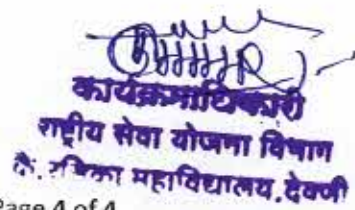 कार्यक्रमाधिकारी
राष्ट्रीय सेवा योजना विभाग
महाविद्यालय, देवणी
Page 4 of 4